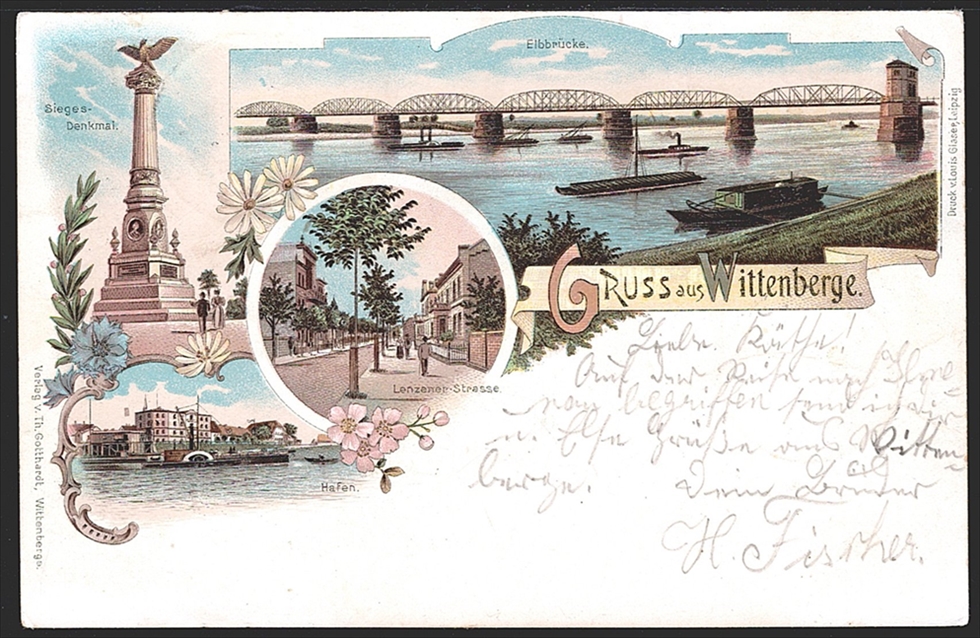 Elbbrücke.
Sieges-
Denkmal.
Druck v. Louis Glaser, Leipzig
GRUSS aus Wittenberge.
Lenzener-Strasse.
Hafen.
Verlag v. Th. Gotthardt, Wittenberge.
Liebe Käthe!
Auf der Reise nach
begriffen sende ich dir
u. Else Grüße aus Witten-
berge. Dein Bruder
H. Fischer.